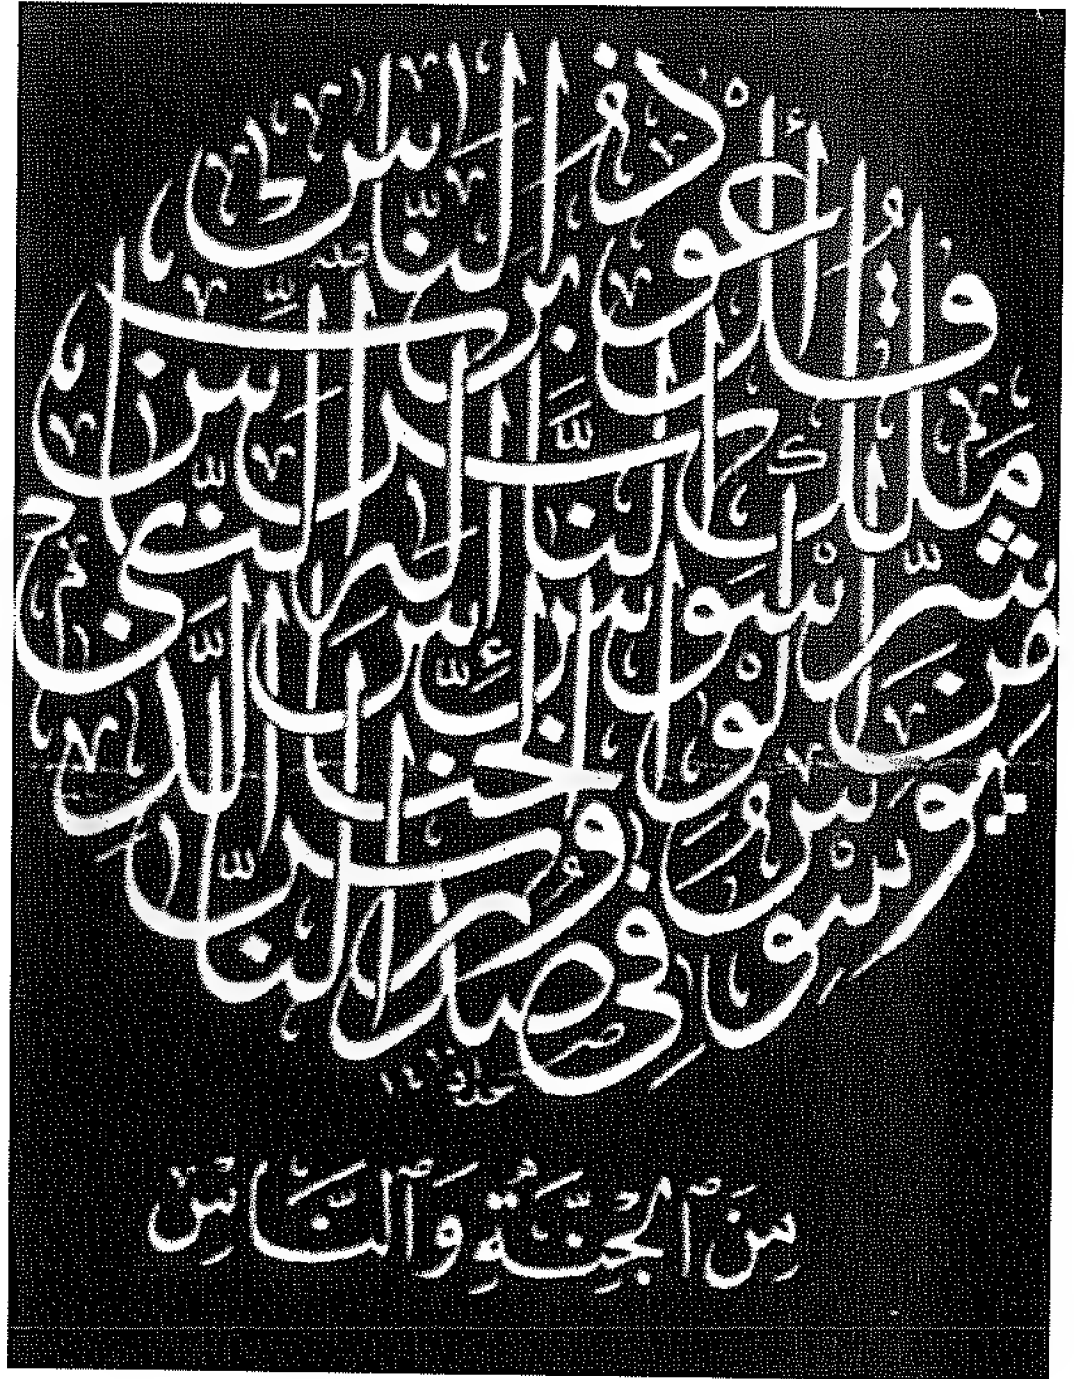 قُلْ أَعُوذُ بِرَبِّ النَّاسِ
مَلِكِ النَّاسِ إِلَهِ النَّاسِ
مِنْ شَرِّ الْوَسْوَاسِ الْخَنَّاسِ الَّذِي
يُوَسْوِسُ فِي صُدُورِ النَّاسِ
مِنَ ٱلْجِنَّةِ وَٱلنَّاسِ